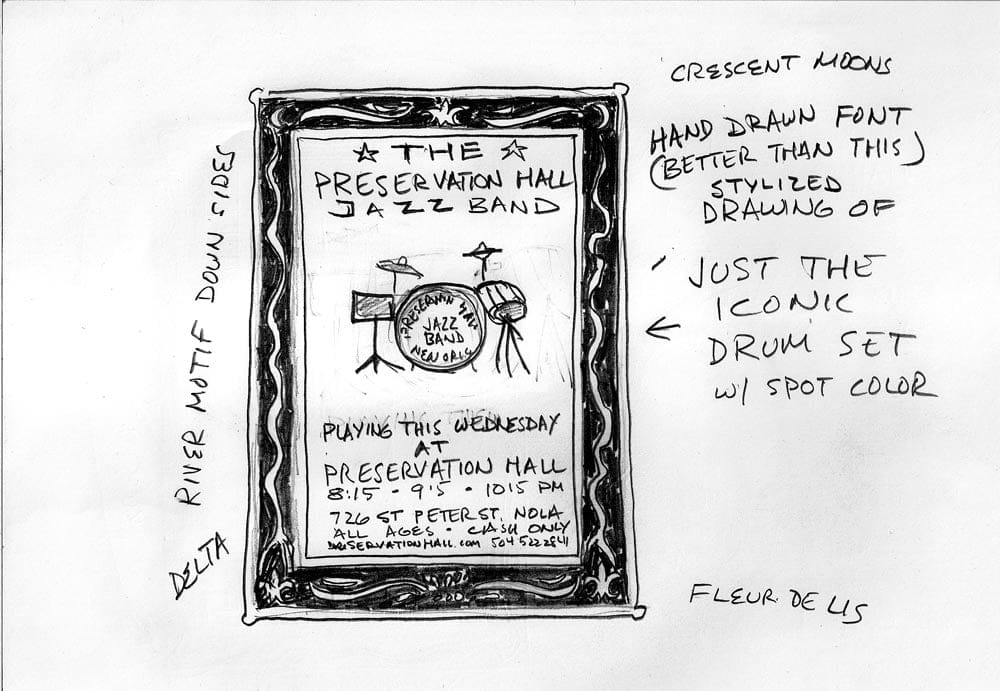 CRESCENT MOONS
HAND DRAWN FONT
(BETTER THAN THIS)
STYLIZED
DRAWING OF
JUST THE
ICONIC
DRUM SET
W/ SPOT COLOR
FLEUR DE LIS
RIVER MOTIF DOWN SIDES
DELTA
THE
PRESERVATION HALL
JAZZ BAND
HALL
JAZZ
BAND
NEW ORLS
PLAYING THIS WEDNESDAY
AT
PRESERVATION HALL
8:15 · 9:15 · 1015 PM
726 ST PETER ST, NOLA
ALL AGES · CASH ONLY
PRESERVATIONHALL.COM 504 522 2841